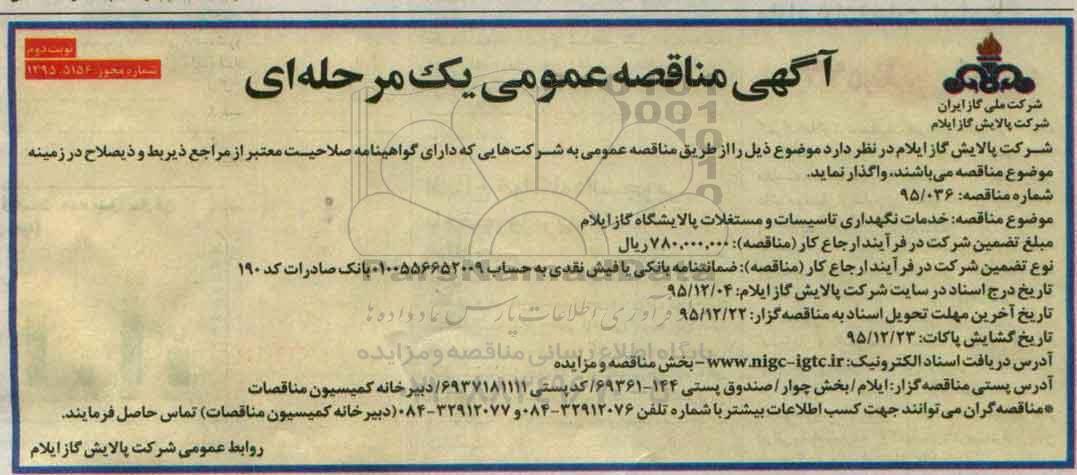 نوبت دوم
شماره مجوز: ۱۳۹۵.۵۱۵۶
آگهی مناقصه عمومی یک مرحله‌ای
شرکت ملی گاز ایران
شرکت پالایش گاز ایلام
شرکت پالایش گاز ایلام در نظر دارد موضوع ذیل را از طریق مناقصه عمومی به شرکت‌هایی که دارای گواهینامه صلاحیت معتبر از مراجع ذیربط و ذیصلاح در زمینه
موضوع مناقصه می‌باشند، واگذار نماید.
شماره مناقصه: ۹۵/۰۳۶
موضوع مناقصه: خدمات نگهداری تاسیسات و مستغلات پالایشگاه گاز ایلام
مبلغ تضمین شرکت در فرآیند ارجاع کار (مناقصه): ۷۸۰,۰۰۰,۰۰۰ ریال
نوع تضمین شرکت در فرآیند ارجاع کار (مناقصه): ضمانتنامه بانکی یا فیش نقدی به حساب ۰۱۰۰۵۵۶۶۵۲۰۰۹ بانک صادرات کد ۱۹۰
تاریخ درج اسناد در سایت شرکت پالایش گاز ایلام: ۹۵/۱۲/۰۴
تاریخ آخرین مهلت تحویل اسناد به مناقصه‌گزار: ۹۵/۱۲/۲۲
تاریخ گشایش پاکات: ۹۵/۱۲/۲۳
آدرس دریافت اسناد الکترونیک: www.nigc-igtc.ir - بخش مناقصه و مزایده
آدرس پستی مناقصه‌گزار: ایلام/بخش چوار/صندوق پستی ۱۴۴-۶۹۳۶۱/کدپستی ۶۹۳۷۱۸۱۱۱۱/دبیرخانه کمیسیون مناقصات
*مناقصه‌گران می‌توانند جهت کسب اطلاعات بیشتر با شماره تلفن ۳۲۹۱۲۰۷۶-۰۸۴ و ۳۲۹۱۲۰۷۷-۰۸۴ (دبیرخانه کمیسیون مناقصات) تماس حاصل فرمایند.
روابط عمومی شرکت پالایش گاز ایلام
ParsNamadData
فرآوری اطلاعات پارس نماد داده‌ها
پایگاه اطلاع رسانی مناقصه و مزایده